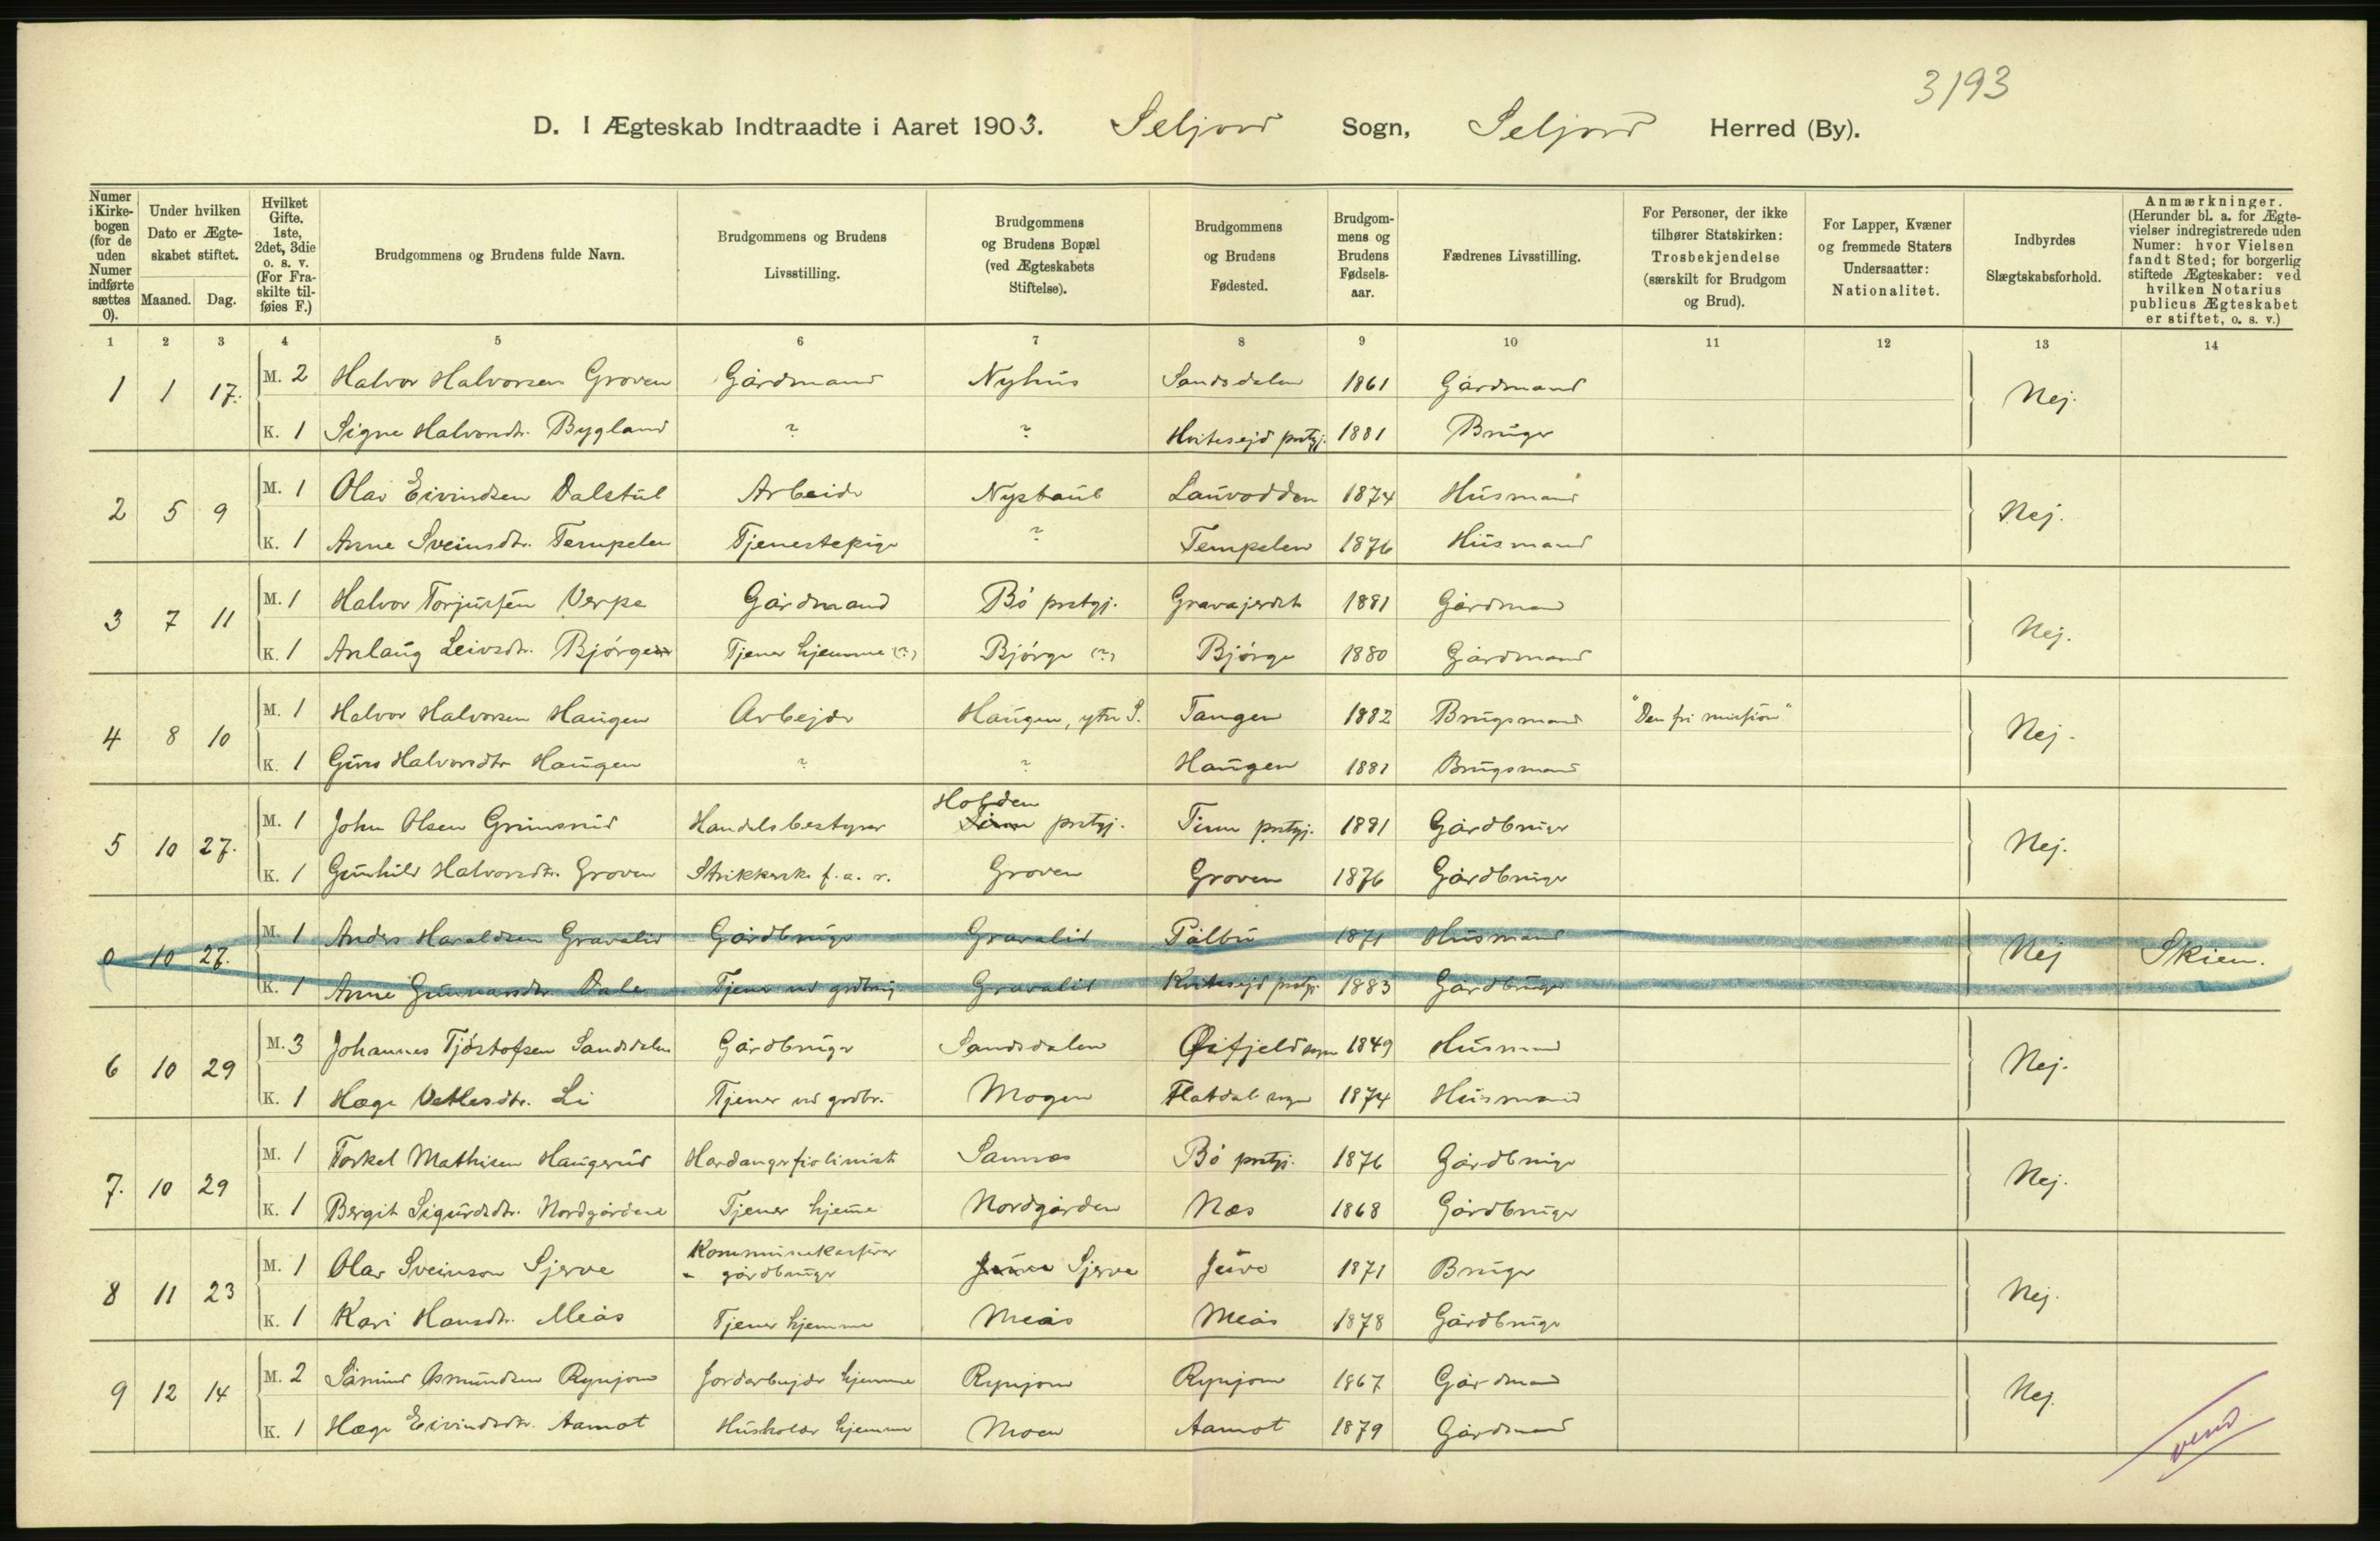 3193
D. I Ægteskab Indtraadte i Aaret 1903. Seljord Sogn, Seljord Herred (By).
Numer i Kirkebogen (for de uden Numer indførte sættes 0).
Under hvilken Dato er Ægteskabet stiftet.
Maaned. Dag.
Hvilket Gifte. 1ste, 2det, 3die o. s. v. (For Fraskilte tilføies F.)
Brudgommens og Brudens fulde Navn.
Brudgommens og Brudens Livsstilling.
Brudgommens og Brudens Bopæl (ved Ægteskabets Stiftelse).
Brudgommens og Brudens Fødested.
Brudgommens og Brudens Fødselsaar.
Fædrenes Livsstilling.
For Personer, der ikke tilhører Statskirken: Trosbekjendelse (særskilt for Brudgom og Brud).
For Lapper, Kvæner og fremmede Staters Undersaatter: Nationalitet.
Indbyrdes Slægtskabsforhold.
Anmærkninger. (Herunder bl. a. for Ægtevielser indregistrerede uden Numer: hvor Vielsen fandt Sted; for borgerlig stiftede Ægteskaber: ved hvilken Notarius publicus Ægteskabet er stiftet, o. s. v.)
1 2 3 4 5 6 7 8 9 10 11 12 13 14
1 1 17. M. 2 Halvor Halvorsen Groven Gårdmand Nyhus Sandsdalen 1861 Gårdmand Nej.
K. 1 Signe Halvorsdtr. Bygland ? ? Hvitesejd prstgj. 1881 Bruger
2 5 9 M. 1 Olav Eivindsen Dalstul Arbeider Nystaul Lauvodden 1874 Husmand Nej.
K. 1 Anne Sveinsdtr. Tempelen Tjenestepige ? Tempelen 1876 Husmand
3 7 11 M. 1 Halvor Torjussen Verpe Gårdmand Bø prstgj. Gravajerdet 1881 Gårdmand Nej.
K. 1 Aslaug Leivsdtr. Bjørge Tjener hjemme (?) Bjørge (?) Bjørge 1880 Gårdmand
4 8 10 M. 1 Halvor Halvorsen Haugen Arbejder Haugen, ytre S. Tangen 1882 Brugsmand "Den fri missión" Nej.
K. 1 Guro Halvorsdtr Haugen ? ? Haugen 1881 Brugsmand
5 10 27. M. 1 John Olsen Grimsrud Handelsbestyrer Holden prstgj. Tinn prstgj. 1881 Gårdbruger Nej.
K. 1 Gunhild Halvorsdtr. Groven Strikkerske f. a. r. Groven Groven 1876 Gårdbruger
0 10 27. M. 1 Anders Haraldsen Gravalid Gårdbruger Gravalid Pålbu 1871 Husmand Nej Skien.
K. 1 Anne Gunnarsdtr. Dale Tjener ved grdbrug. Gravalid Kvitesejd prstgj. 1883 Gårdbruger
6 10 29 M. 3 Johannes Tjøstofsen Sandsdalen Gårdbruger Sandsdalen Øifjeld sogn 1849 Husmand Nej.
K. 1 Hæge Vetlesdtr. Li Tjener ved grdbr. Mogen Flatdal sogn 1874 Husmand
7. 10 29 M. 1 Torkel Mathisen Haugerud Hardangerfiolinist Sannæs Bø prstgj. 1876 Gårdbruger Nej.
K. 1 Bergit Sigurdsdtr. Nordgårdene Tjener hjeme Nordgården Næs 1868 Gårdbruger
8 11 23 M. 1 Olav Sveinson Sjerve Kommunekasserer - gårdbruger Sjerve Juve 1871 Bruger Nej.
K. 1 Kari Hansdtr. Meås Tjener hjemme Meås Meås 1878 Gårdbruger
9 12 14 M. 2 Såmund Åsmundsen Rynjom Jordarbejder hjemme Rynjom Rynjom 1867 Gårdmand Nej.
K. 1 Hæge Eivindsdtr. Aamot Husholder hjemme Moen Aamot 1879 Gårdmand
vend